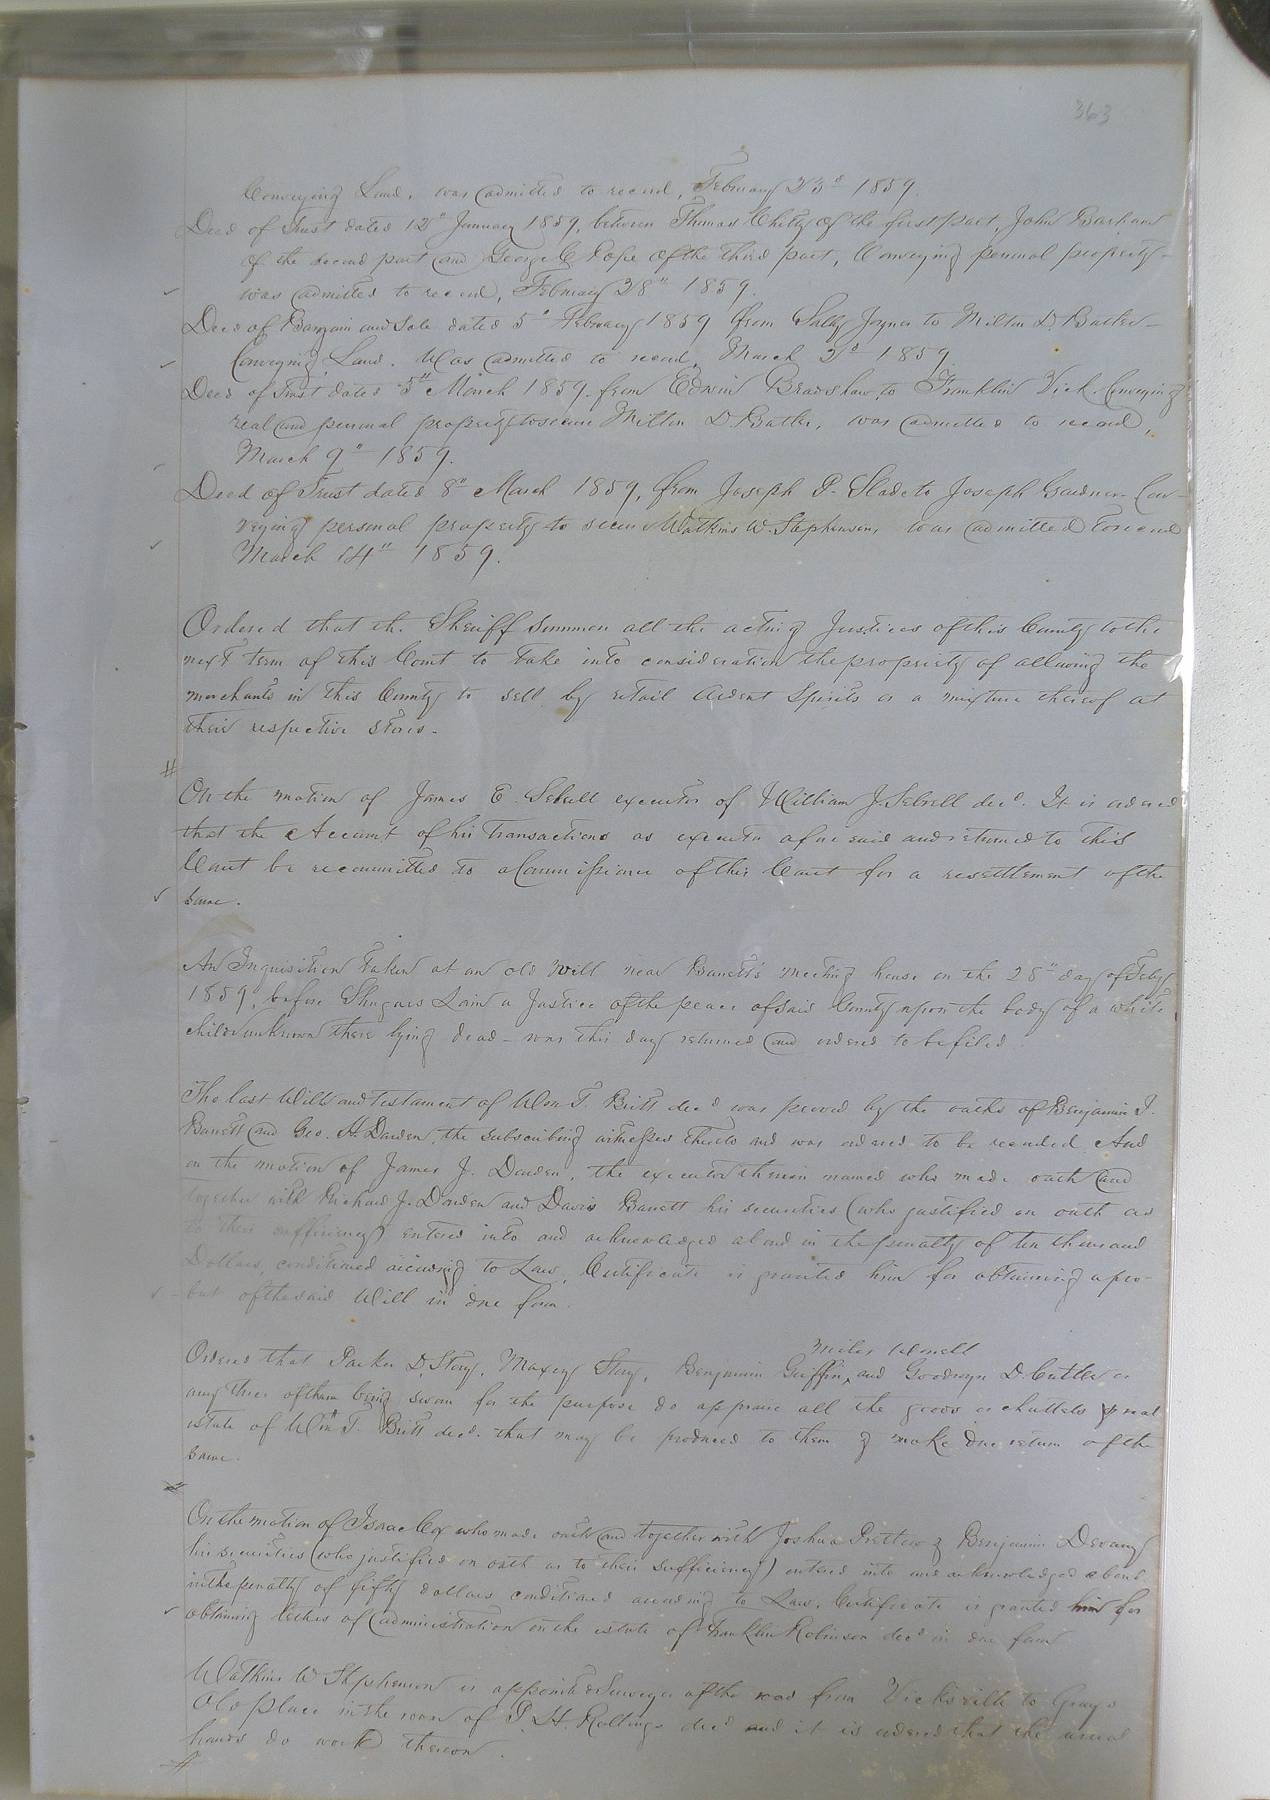 363
Conveying Land, was admitted to record, February 23d 1859.
Deed of Trust dated 12" January 1859, between Thomas Chitty of the first part, John Barham
of the second part and George C Pope of the third part, Conveying personal property
was admitted to record, February 28" 1859.
Deed of Bargain and Sale dated 5" February 1859 from Sally Joyner to Milton D. Butler
Conveying Land. Was admitted to record March 2d 1859.
Deed of Trust dated 5th March 1859. from Edwin Bradshaw to Franklin Vick Conveying
real and personal property to secure Milton D. Butler, was admitted to record,
March 9" 1859.
Deed of Trust dated 8" March 1859, from Joseph P. Slade to Joseph Gardner Con-
veying personal property to secure Watkins W. Stephenson, was admitted to record
March 14" 1859.
Ordered that the Sheriff summon all the acting Justices of this County to the
next term of this Court to take into consideration the propriety of allowing the
merchants in this County to sell by retail Ardent Spirits or a mixture thereof at
their respective stores.
On the motion of James E. Sebrell executor of William J. Sebrell decd. It is ordered
that the Account of his transactions as executor aforesaid and returned to this
Court be recommitted to a Commissioner of this Court for a resettlement of the
same.
An Inquisition taken at an old Mill near Barrett's meeting house on the 28" day of Feby
1859, before Shugars Lain a Justice of the peace of said County upon the body of a white
child unknown there lying dead was this day returned and ordered to be filed
The last Will and testament of Wm T. Britt decd was proved by the oaths of Benjamin T.
Barrett and Geo. H. Darden the subscribing witnesses thereto and was ordered to be recorded. And
on the motion of James J. Darden, the executor therein named who made oath and
together with Richard J. Darden and Davis Barrett his securities (who justified on oath as
to their sufficiency) entered into and acknowledged a bond in the penalty of ten thousand
Dollars, conditioned according to Law, Certificate is granted him for obtaining a pro-
bat of the said Will in due form.
Miles Worrell
Ordered that Parker D. Story, Maxey Story, Benjamin Griffin, and Goodwyn D. Cutler or
any three of them being sworn for the purpose do appraise all the goods or chattels & real
estate of Wm T. Britt decd. that may be produced to them & make due return of the
same.
On the motion of Isaac Cox who made oath and together with Joshua Pretlow & Benjamin Devany
his securities (who justified on oath as to their sufficiency) entered into and acknowledged a bond
in the penalty of fifty dollars conditioned according to Law. Certificate is granted him for
obtaining letters of administration on the estate of Franklin Robinson decd in due form
Watkins W Stephenson is appointed Surveyor of the road from Vicksville to Grays
Old place in the room of P. H. Rollings decd and it is ordered that the usual
hands do work thereon.